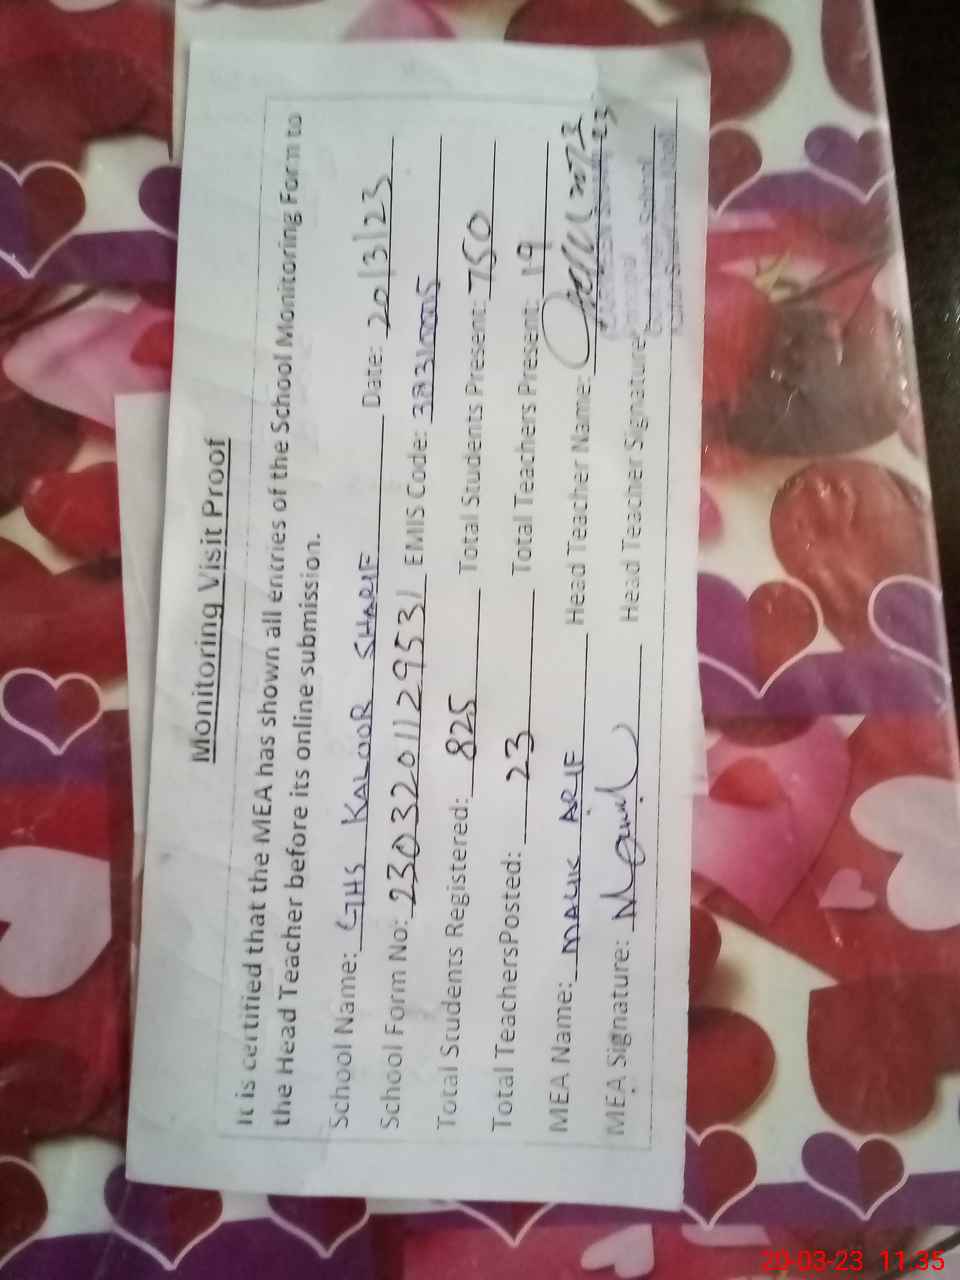 Monitoring Visit Proof
It is certified that the MEA has shown all entries of the School Monitoring Form to
the Head Teacher before its online submission.
School Name: GHS KALOOR SHARIF Date: 20/3/23
School Form No: 2303201129531 EMIS Code:
Total Students Registered: 825 Total Students Present: 750
Total TeachersPosted: 23 Total Teachers Present: 19
MEA Name: MALIK ARIF Head Teacher Name:
MEA Signature: Head Teacher Signature:
School
20-03-23 11:35